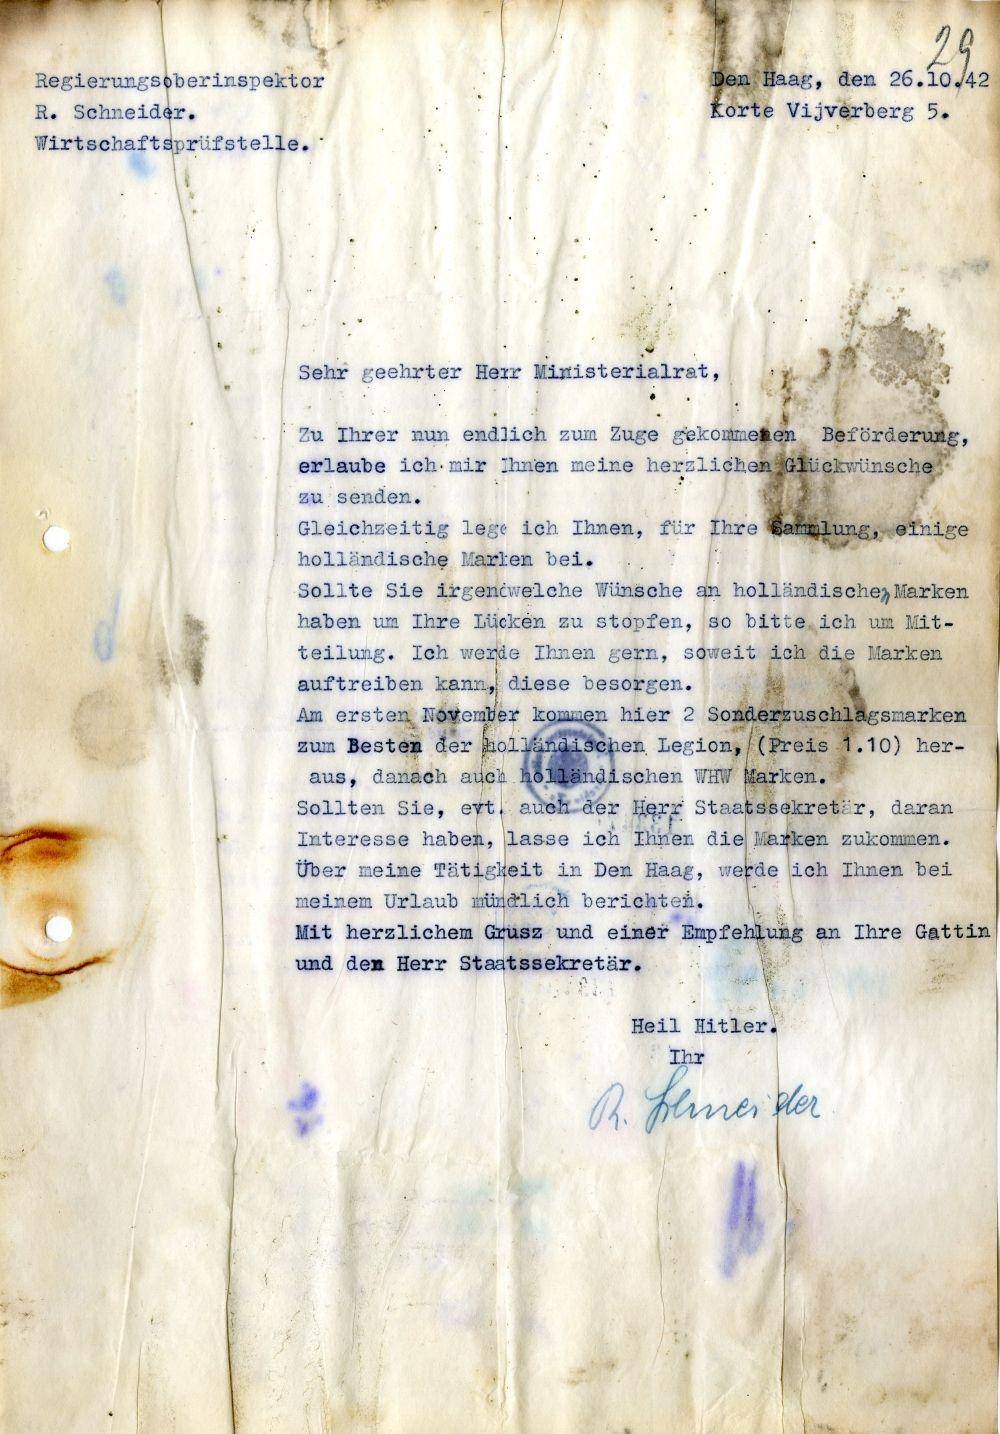 29
Regierungsoberinspektor
R. Schneider.
Wirtschaftsprüfstelle.
Den Haag, den 26.10.42
Korte Vijverberg 5.
Sehr geehrter Herr Ministerialrat,
Zu Ihrer nun endlich zum Zuge gekommenen Beförderung,
erlaube ich mir Ihnen meine herzlichen Glückwünsche
zu senden.
Gleichzeitig lege ich Ihnen, für Ihre Sammlung, einige
holländische Marken bei.
Sollte Sie irgendwelche Wünsche an holländischen Marken
haben um Ihre Lücken zu stopfen, so bitte ich um Mit-
teilung. Ich werde Ihnen gern, soweit ich die Marken
auftreiben kann, diese besorgen.
Am ersten November kommen hier 2 Sonderzuschlagsmarken
zum Besten der holländischen Legion, (Preis 1.10) her-
aus, danach auch holländischen WHW Marken.
Sollten Sie, evt. auch der Herr Staatssekretär, daran
Interesse haben, lasse ich Ihnen die Marken zukommen.
Über meine Tätigkeit in Den Haag, werde ich Ihnen bei
meinem Urlaub mündlich berichten.
Mit herzlichem Grusz und einer Empfehlung an Ihre Gattin
und den Herr Staatssekretär.
Heil Hitler.
Ihr
R. Schneider